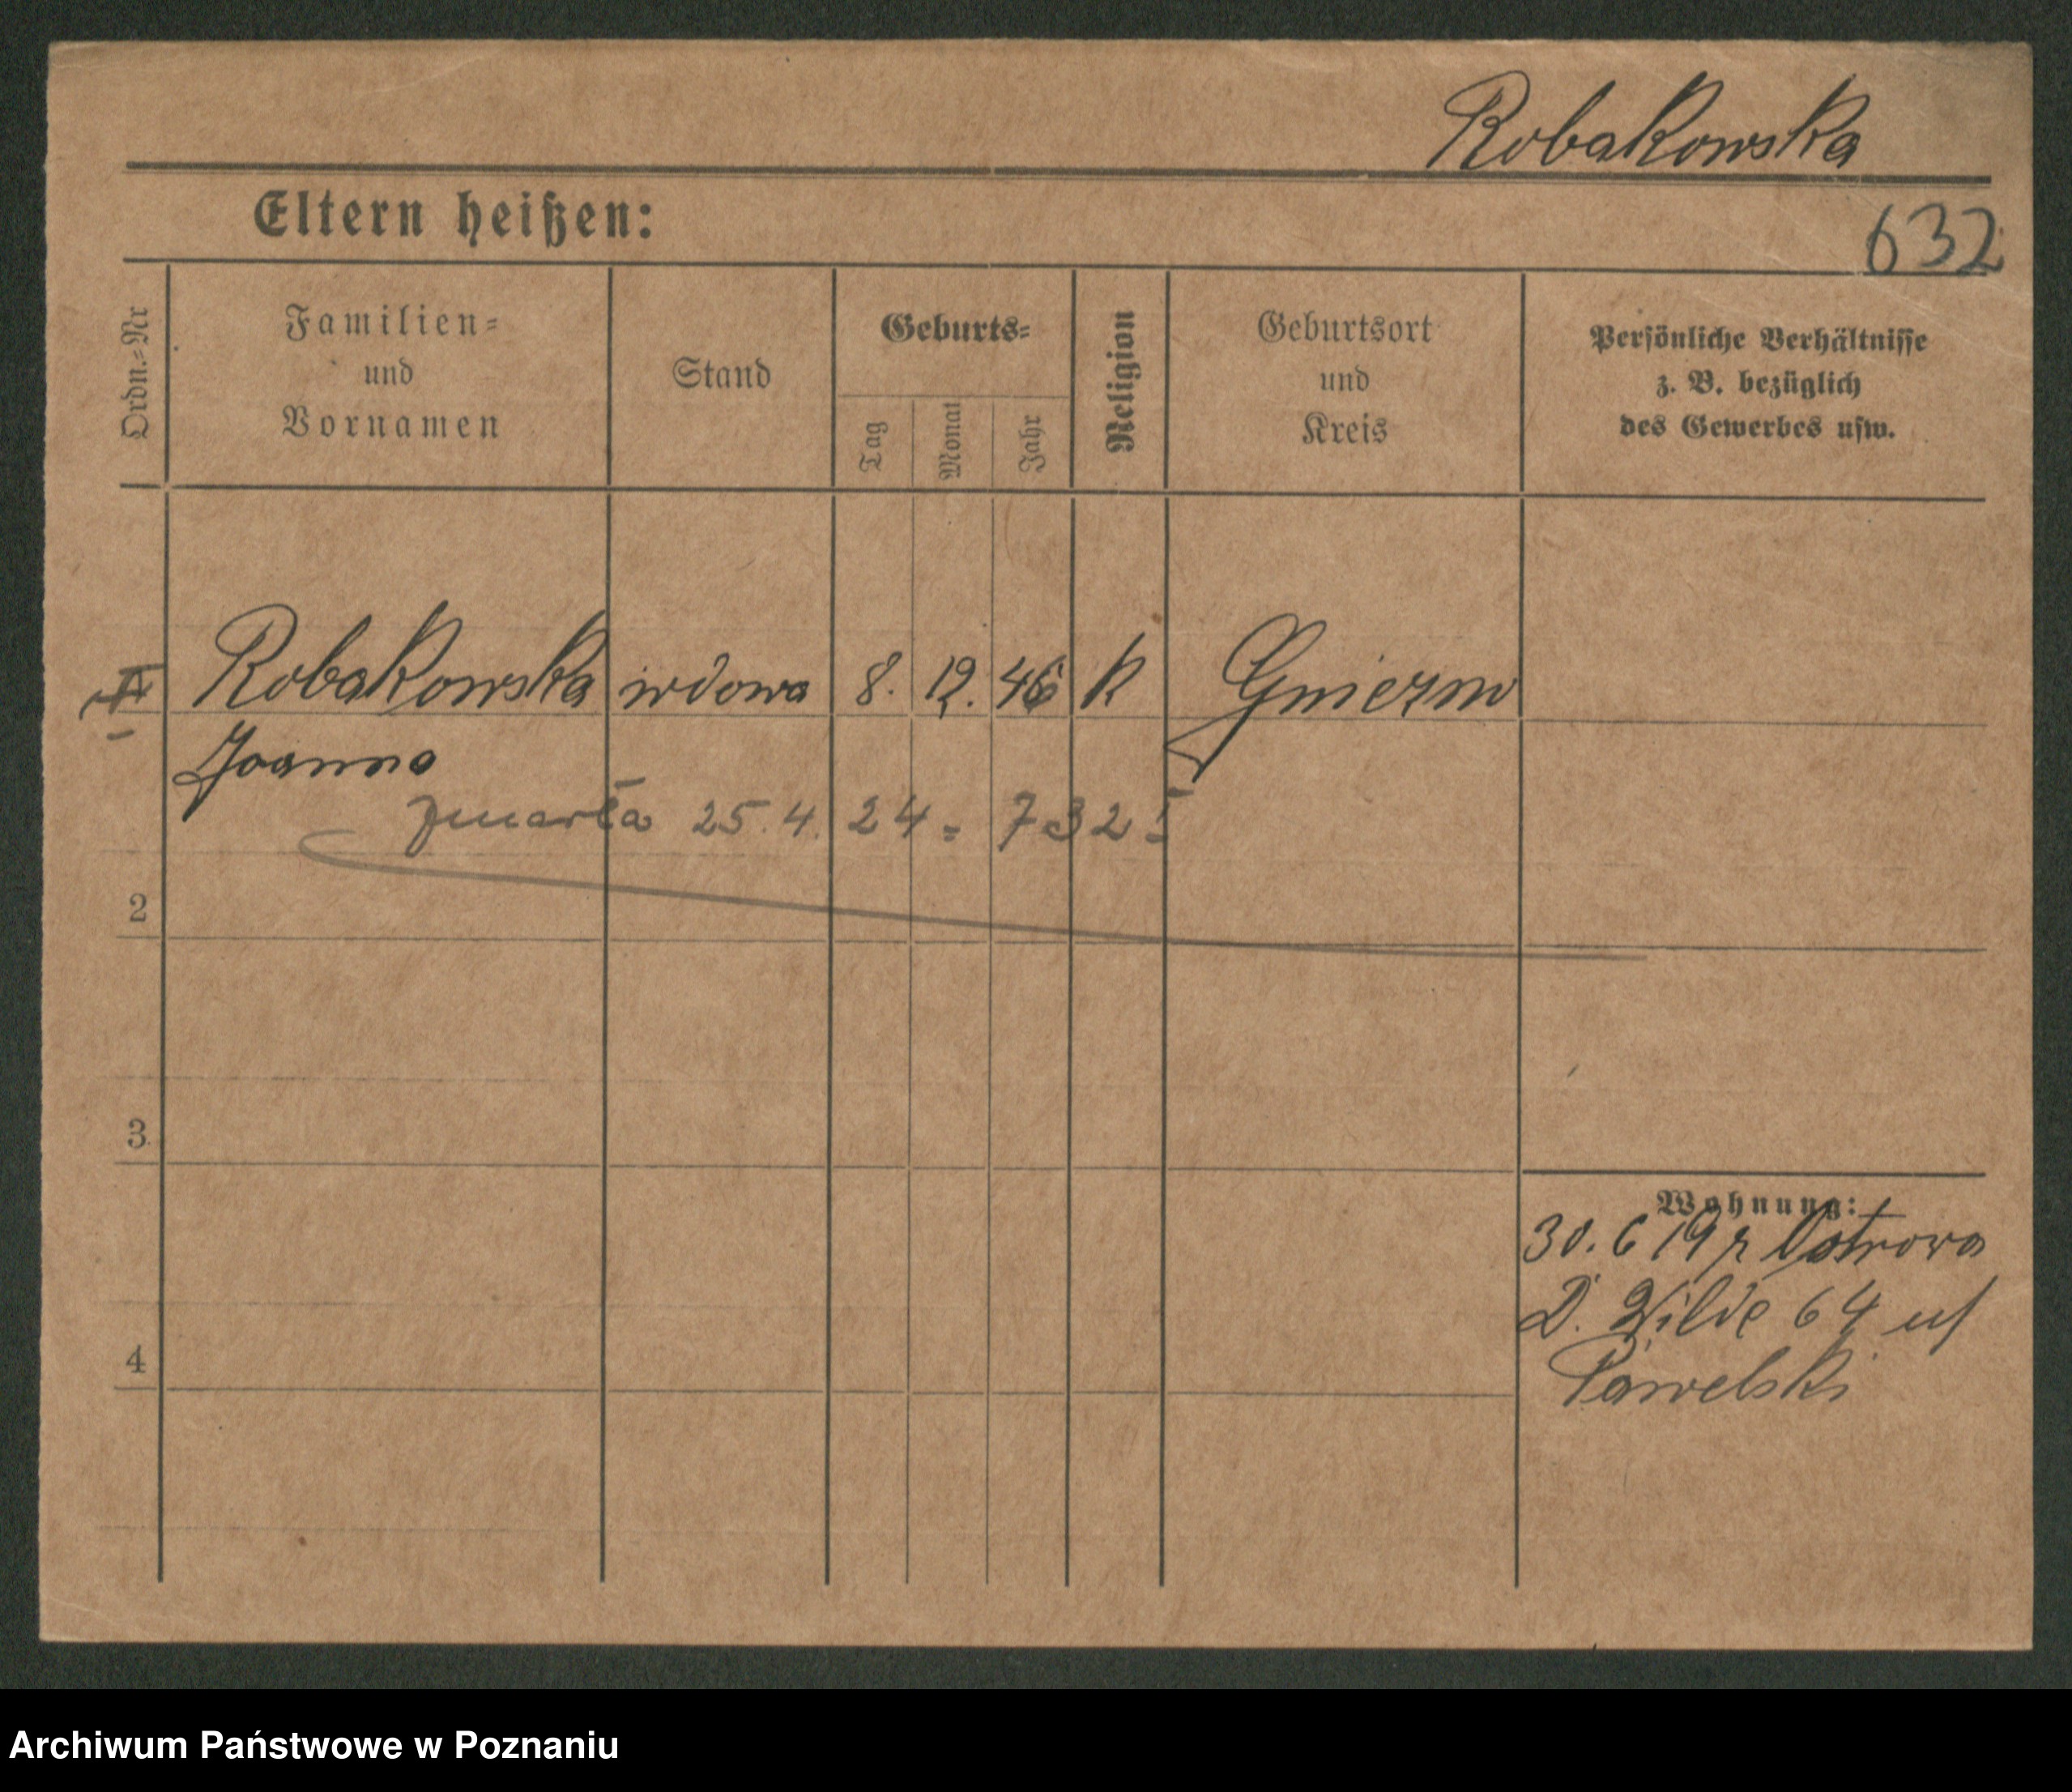 Robakowska
Eltern heißen:
632
Ordn.=Nr
Familien=
und
Vornamen
Stand
Geburts=
Tag
Monat
Jahr
Religion
Geburtsort
und
Kreis
Persönliche Verhältnisse
z. B. bezüglich
des Gewerbes usw.
Robakowska wdowa 8. 12. 46 K Gniezno
Joanna
zmarła 25.4.24 = 732
2
3
4
Wohnung:
30.6 19 z Ostrowa
D. Wilde 64 u/
Pawelski
Archiwum Państwowe w Poznaniu